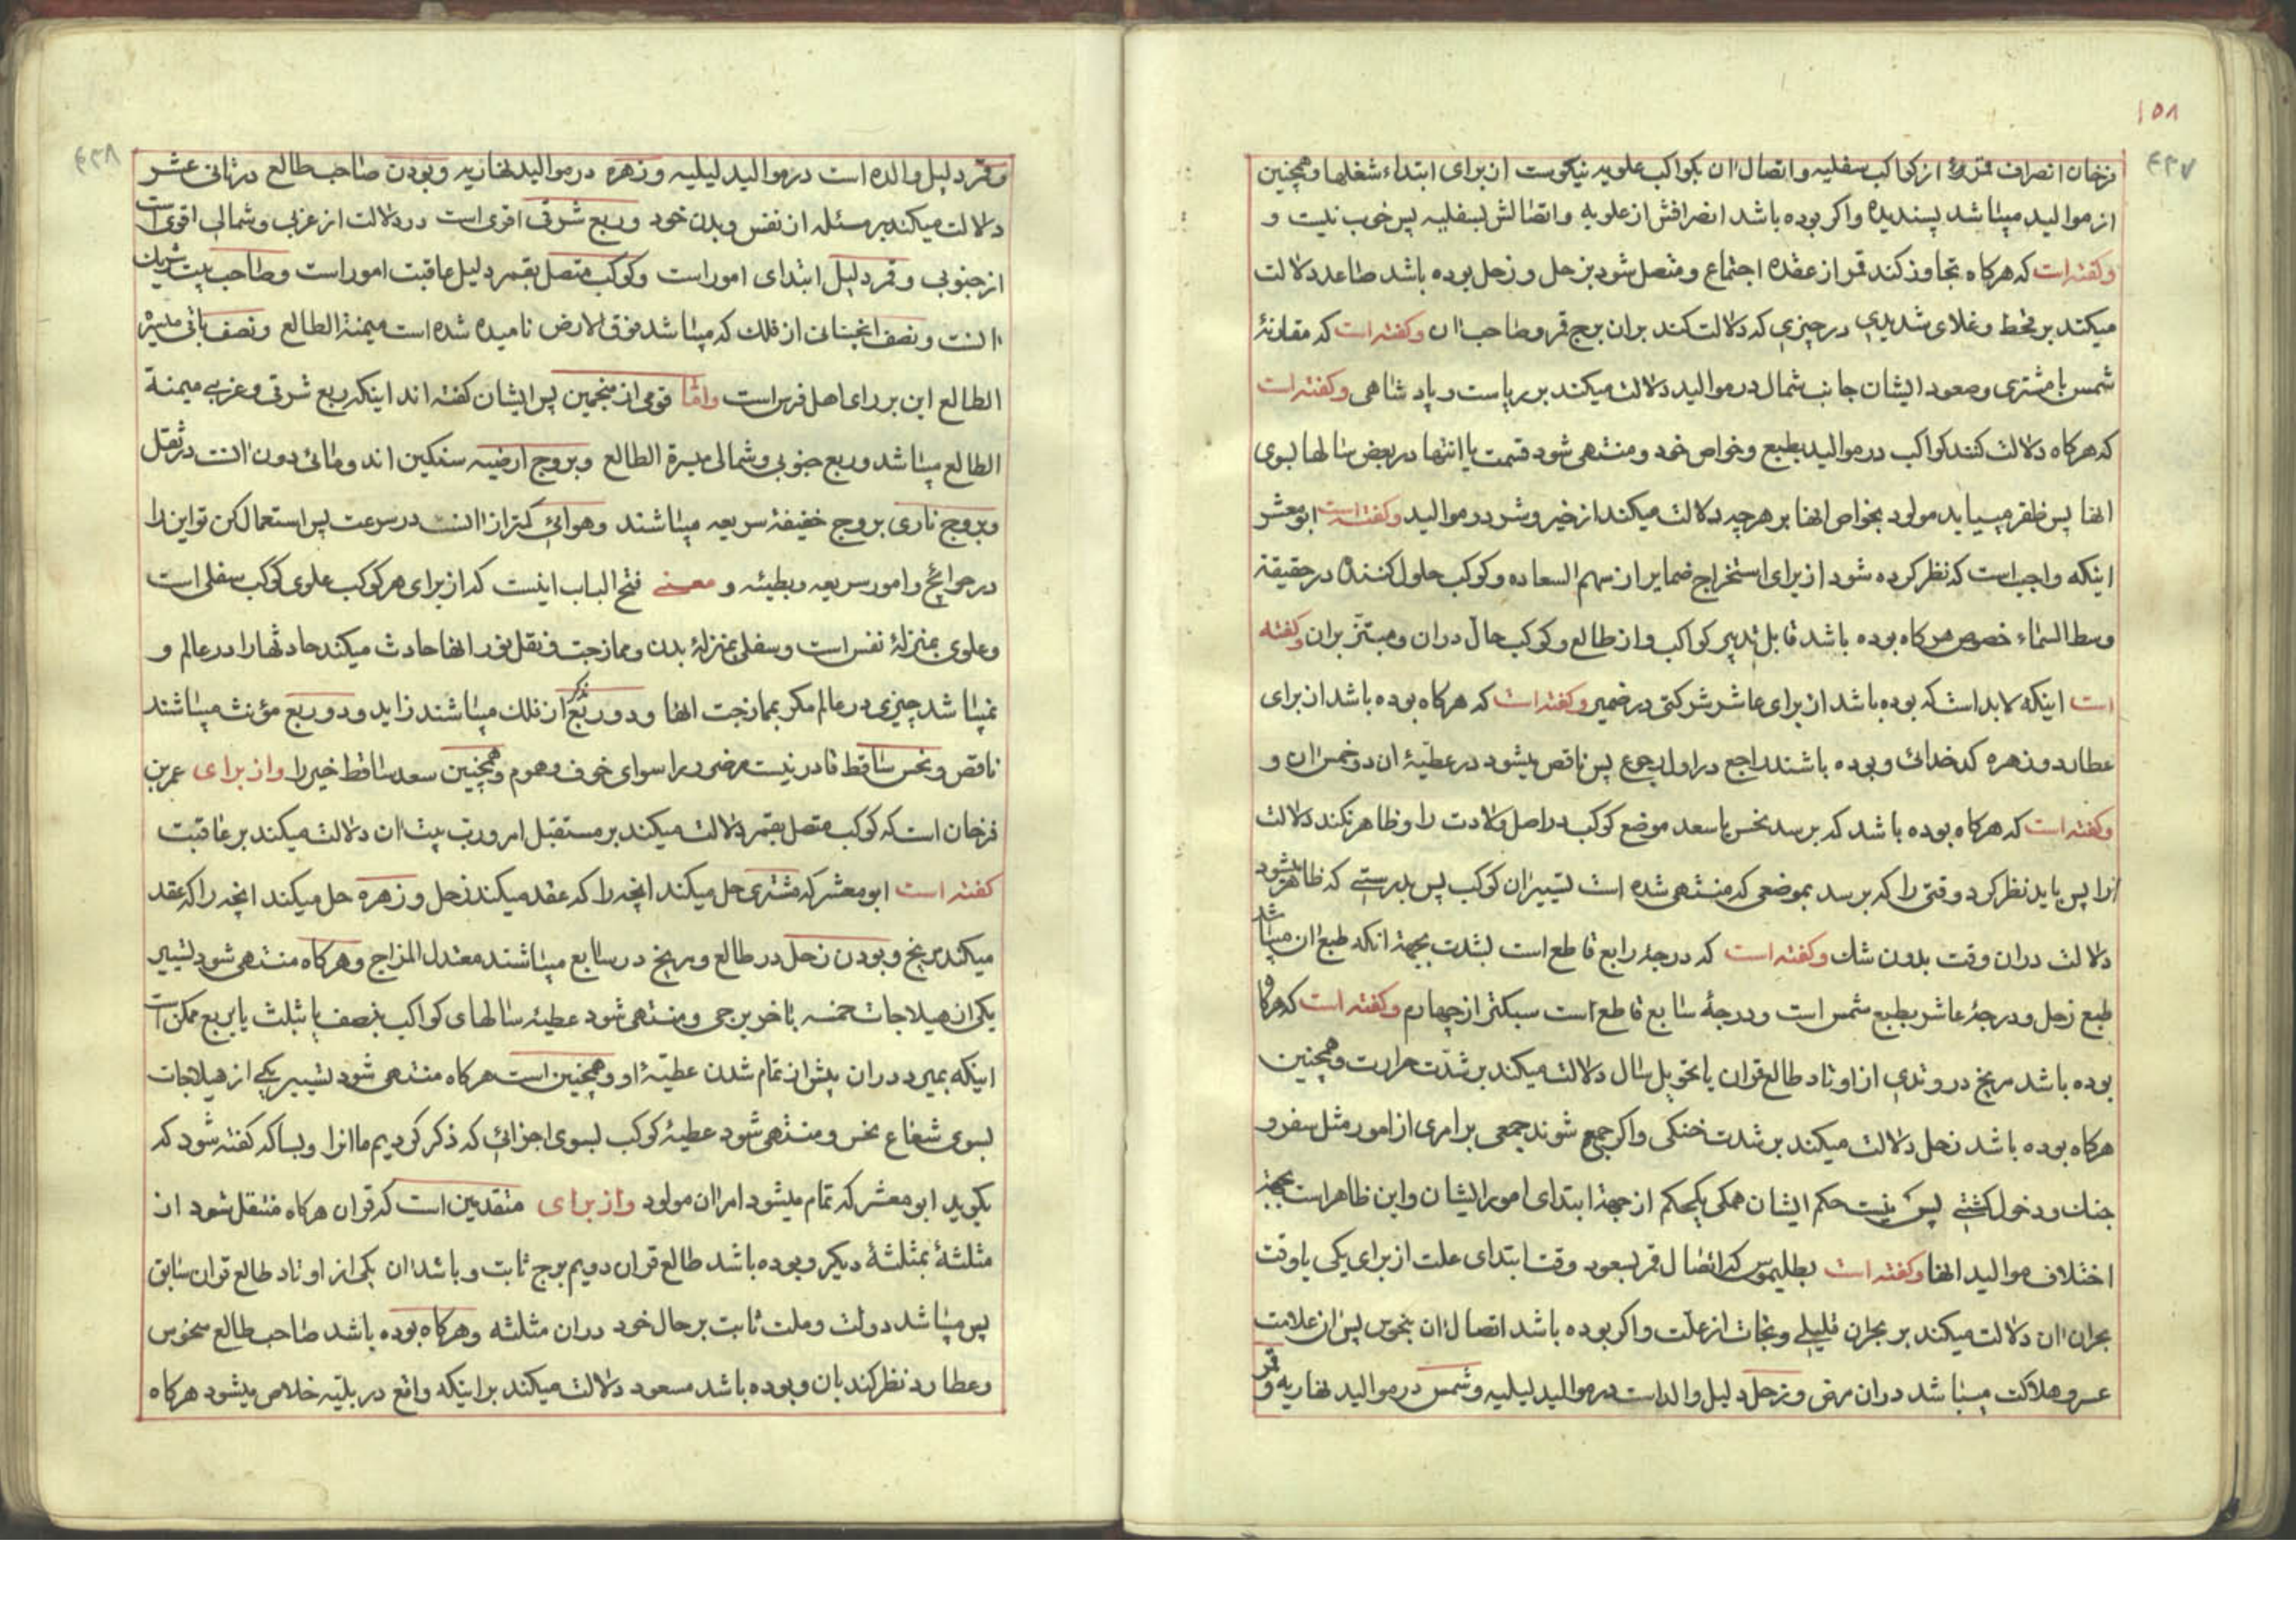 ۱۵۸
۴۳۷
فرخان انصراف قمر از کواکب سفلیه و اتصال ان بکواکب علویه نیکوست از برای ابتداء شغلها و همچنین
از موالید میباشد پسندیده و اکر بوده باشد انصرافش از علویه و اتصالش بسفلیه پس خوب نیست و
وکفته است که هرکاه تجاوز کند قمر از عقده اجتماع و متصل شود بزحل و زحل بوده باشد صاعد دلالت
میکند بر قحط و غلای شدیدی در چیزی که دلالت کند بران برج قمر و صاحب ان وکفته است که مقارنهٔ
شمس با مشتری و صعود ایشان جانب شمال در موالید دلالت میکند بر ریاست و پادشاهی وکفته است
که هرکاه دلالت کنند کواکب در موالید بطبع و خواص خود و منتهی شود قسمت یا انتها در بعض سالها بسوی
انها پس ظفر مییابد مولود بخواص انها بر هرچه دلالت میکند از خیر و شر در موالید وکفته است ابو معشر
اینکه واجب است که نظر کرده شود از برای استخراج ضمایر از سهم السعاده و کوکب حلول کننده در حقیقة
وسط السماء خصوص هرکاه بوده باشد قابل تدبیر کواکب و از طالع و کوکب حال دران و مبتز بران وکفته
است اینکه لابد است که بوده باشد از برای عاشر شرکتی در ضمیر وکفته است که هرکاه بوده باشد از برای
عطارد و زهره کدخدائی و بوده باشند راجع در اول رجوع پس ناقص میشود در عطیهٔ ان دو خمس ان و
وکفته است که هرکاه بوده باشد که برسد نحس یا سعد موضع کوکب در اصل ولادت را و ظاهر نکند دلالت
انرا پس باید نظر کرد وقتی را که برسد بموضعی که منتهی شده است تسییر ان کوکب پس بدرستی که ظاهر میشود
دلالت دران وقت بدون شک وکفته است که درجهٔ رابع قاطع است بشدت بجهة انکه طبع ان میباشد
طبع زحل و درجهٔ عاشر بطبع شمس است و درجهٔ سابع قاطع است سبکتر از چهارم وکفته است که هرکاه
بوده باشد مریخ در وتدی از اوتاد طالع قران یا تحویل سال دلالت میکند بر شدت حرارت و همچنین
هرکاه بوده باشد زحل دلالت میکند بر شدت خنکی و اکر جمع شوند جمعی بر امری از امور مثل سفر و
جنک و دخول کشتی پس نیست حکم ایشان همکی یکحکم از جهة ابتدای امور ایشان و این ظاهر است بجهة
اختلاف موالید انها وکفته است بطلیموس که اتصال قمر بسعود وقت ابتدای علت از برای یکی یا وقت
بحران ان دلالت میکند بر بحران قلیلی و نجات از علت و اکر بوده باشد اتصال ان بنحوس پس ان علامت
عسر و هلاکت میباشد دران مرض و زحل دلیل والد است در موالید لیلیه و شمس در موالید نهاریه و قمر
۴۳۸
و قمر دلیل والده است در موالید لیلیه و زهره در موالید نهاریه و بودن صاحب طالع در ثانی عشر
دلالت میکند بر مسئله از نفس و بدن خود و ربع شرقی اقوی است در دلالت از غربی و شمالی اقوی است
از جنوبی و قمر دلیل ابتدای امور است و کوکب متصل بقمر دلیل عاقبت امور است و صاحب بیت شریک
انست و نصف انچنانی از فلک که میباشد فوق الارض نامیده شده است میمنة الطالع و نصف باقی میسرة
الطالع این بر رای اهل فرس است و امّا قومی از منجمین پس ایشان کفته اند اینکه ربع شرقی و غربی میمنة
الطالع میباشد و ربع جنوبی و شمالی میسرة الطالع و بروج ارضیه سنکین اند و مائی دون انست در ثقل
و بروج ناری بروج خفیفهٔ سریعه میباشند و هوائی کمتر از انست در سرعت پس استعمال کن تو این را
در حوائج و امور سریعه و بطیئه و معنی فتح الباب اینست که از برای هر کوکب علوی کوکب سفلی است
و علوی بمنزلهٔ نفس است و سفلی بمنزلهٔ بدن و ممازجت و نقل نور انها حادث میکند حادثها را در عالم و
نمیباشد چیزی در عالم مکر بممازجت انها و دو ربع مذکر از فلک میباشند زاید و دو ربع مؤنث میباشند
ناقص و نحس ساقط قادر نیست مر ضرر را سوای خوف و هموم و همچنین سعد ساقط خیر را و از برای عمر بن
فرخان است که کوکب متصل بقمر دلالت میکند بر مستقبل امر و رب بیت ان دلالت میکند بر عاقبت
کفته است ابو معشر که مشتری حل میکند انچه را که عقد میکند زحل و زهره حل میکند انچه را که عقد
میکند مریخ و بودن زحل در طالع و مریخ در سابع میباشند معتدل المزاج و هرکاه منتهی شود تسییر
یکی از هیلاجات خمسه باخر برجی و منتهی شود عطیهٔ سالهای کواکب بنصف یا بثلث یا بربع ممکن است
اینکه بمیرد دران پیش از تمام شدن عطیهٔ او و همچنین است هرکاه منتهی شود تسییر یکی از هیلاجات
بسوی شعاع نحس و منتهی شود عطیهٔ کوکب بسوی اجزائی که ذکر کردیم ما انرا و بسا که کفته شود که
بکوید ابو معشر که تمام میشود امر ان مولود و از برای متقدمین است که قران هرکاه منتقل شود از
مثلثهٔ بمثلثهٔ دیکر و بوده باشد طالع قران دویم برج ثابت و باشد ان یکی از اوتاد طالع قران سابق
پس میباشد دولت و ملت ثابت بر حال خود دران مثلثه و هرکاه بوده باشد صاحب طالع منحوس
و عطارد نظر کند بان و بوده باشد مسعود دلالت میکند بر اینکه واقع در بلیه خلاص میشود هرکاه